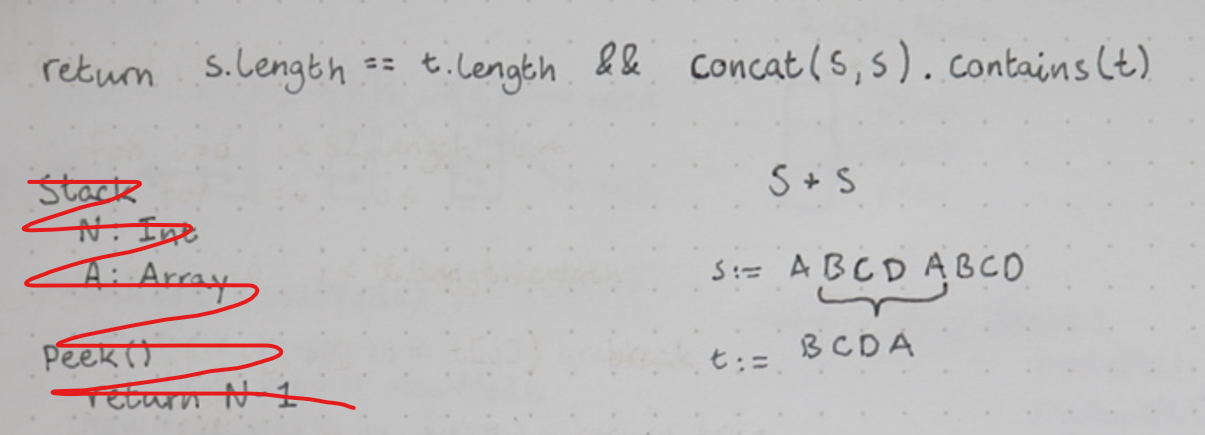 return s.length == t.length && concat(s,s).contains(t)
Stack
N: Int
A: Array
Peek()
return N-1
S + S
s:= ABCDABCD
t:= BCDA